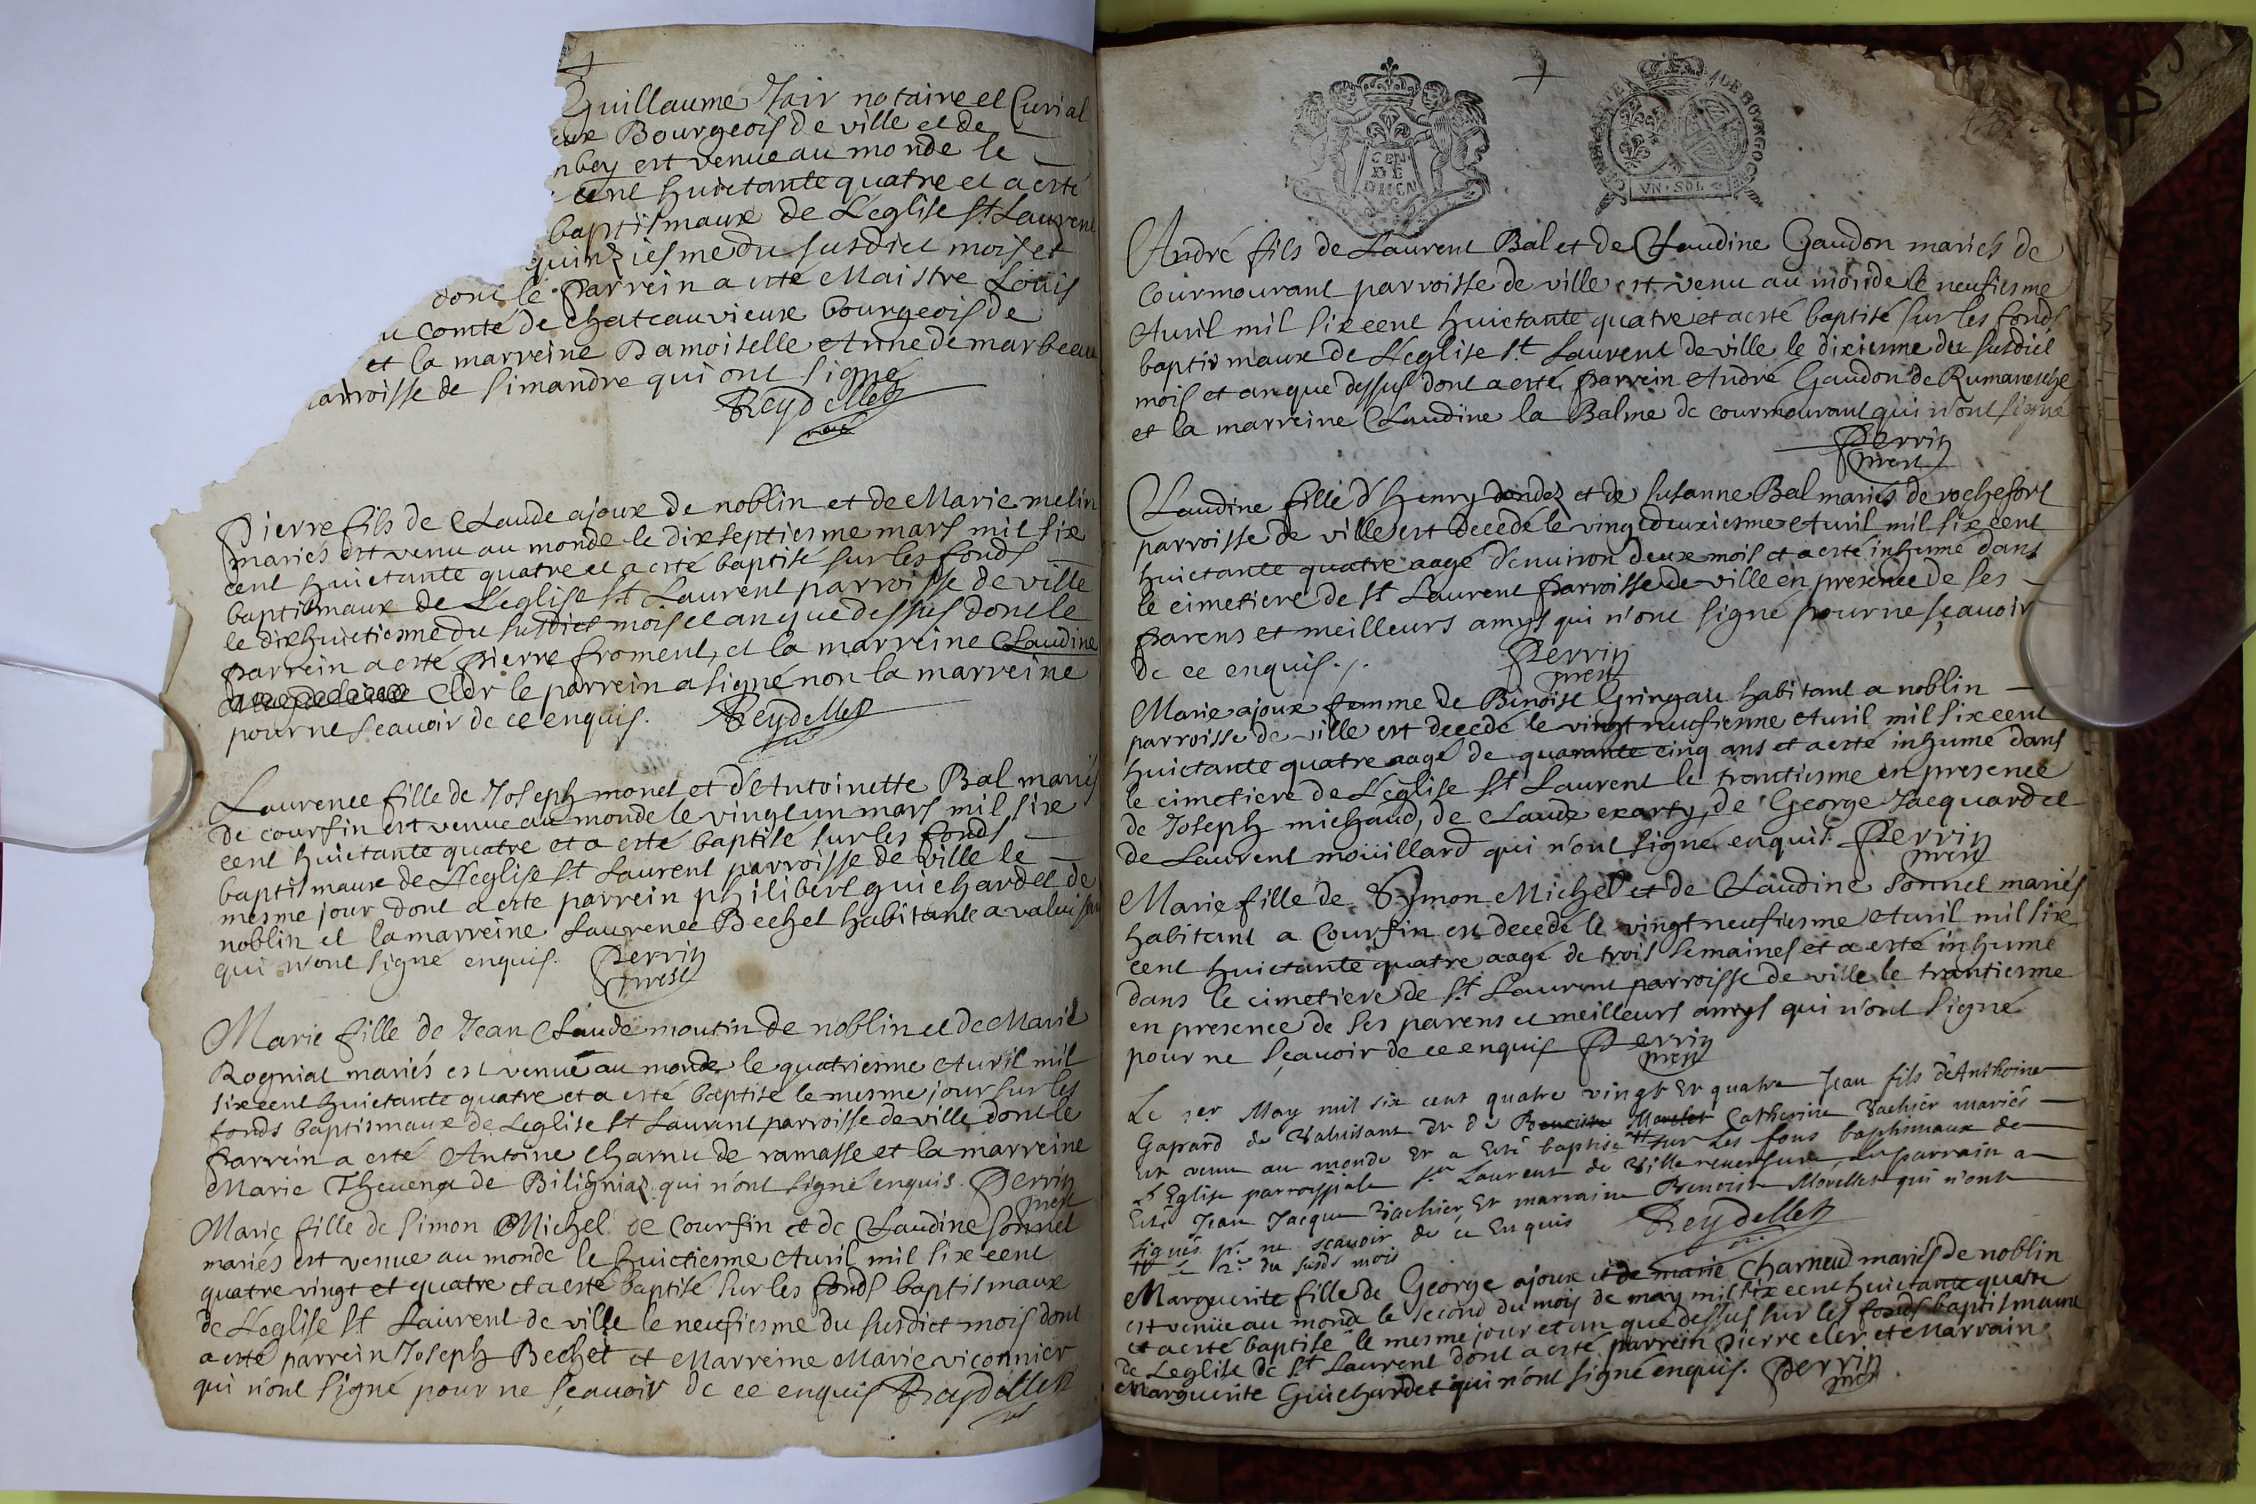 Guillaume Jair notaire et Curial
eux Bourgeois de ville et de
bey est venue au monde le
cent huictante quatre et a esté
baptismaux de L'eglise St Laurent
quinziesme du susdict mois et
dont le parrein a esté Maistre Loüis
u comté de chateauvieux bourgeois de
et la marreine Damoiselle Anne de marbeau
arroisse de simandre qui ont signé
Reydellet
Pierre fils de Claude ajoux de noblin et de Marie melin
mariés est venu au monde le dixseptiesme mars mil six
cent huictante quatre et a esté baptisé sur les fonds
baptismaux de L'eglise St Laurent parroisse de ville
le dixhuictiesme du susdict mois et an que dessus dont le
parrein a esté pierre froment, et la marreine Claudine
Cler le parrein a signé non la marreine
pour ne scavoir de ce enquis. Reydellet
Laurence fille de Joseph monet et d'Antoinette Bal mariés
de courfin est venue au monde le vingt un mars mil six
cent huictante quatre et a esté baptisé sur les fonds
baptismaux de L'eglise St Laurent parroisse de ville le
mesme jour dont a esté parrein philibert guichardet de
noblin et la marreine Laurence Bechet habitante a valuisan
qui n'ont signé enquis. Perrin
Marie fille de Jean Claude moutin de noblin et de Marie
Rogniat mariés est venue au monde le quatriesme Auril mil
six cent huictante quatre et a esté baptisé le mesme jour sur les
fonds baptismaux de L'eglise St Laurent parroisse de ville dont le
parrein a esté Antoine charnu de ramasse et la marreine
Marie Thevena de Biligniaz qui n'ont signé enquis. Perrin
Marie fille de Simon Michel de Courfin et de Claudine sonnet
mariés est venue au monde le huictiesme Auril mil six cent
quatre vingt et quatre et a esté baptisé sur les fonds baptismaux
de L'eglise St Laurent de ville le neufiesme du susdict mois dont
a esté parrein Joseph Bechet et Marreine Marie viconnier
qui n'ont signé pour ne sçauoir de ce enquis Reydellet
GEN
DE
DIION
GENERALITE DE BOURGOGNE
VN·SOL
André fils de Laurent Bal et de Claudine Gaudon mariés de
Courmourant parroisse de ville est venu au monde le neufiesme
Auril mil six cent huictante quatre et a esté baptisé sur les fonds
baptismaux de L'eglise St Laurent de ville le dixiesme du susdict
mois et an que dessus dont a esté parrein André Gaudon de Rumanesche
et la marreine Claudine la Balme de courmourant qui n'ont signé
Perrin
Claudine fille d'henry dondez et de Susanne Bal mariés de rochefort
parroisse de ville est decedé le vingtdeuxiesme Auril mil six cent
huictante quatre aagé d'enuiron deux mois et a esté inhumé dans
le cimetiere de St Laurent parroisse de ville en presence de ses
parens et meilleurs amys qui n'ont signé pour ne sçauoir
de ce enquis. Perrin
Marie ajoux femme de Binoist Gringau habitant a noblin
parroisse de ville est decedé le vingt neufiesme Auril mil six cent
huictante quatre aagé de quarante cinq ans et a esté inhumé dans
le cimetiere de L'eglise St Laurent le trantiesme en presence
de Joseph michaud, de Claude exarty, de George Jacquard et
de Laurent moüillard qui n'ont signé enquis. Perrin
Marie fille de Symon Michel et de Claudine Sonnet mariés
habitant a Courfin est decedé le vingt neufiesme Auril mil six
cent huictante quatre aagé de trois semaines et a esté inhumé
dans le cimetiere de St Laurent parroisse de ville le trantiesme
en presence de ses parens et meilleurs amys qui n'ont signé
pour ne sçauoir de ce enquis Perrin
Le 1er May mil six cent quatre vingt Et quatre Jean fils d'Anthoine
Gapard de Valuisant Et de Catherine Vachier mariés
est venu au monde Et a Esté baptisé sur Les fons baptismaux de
L'Eglise parroissiale St Laurent de Ville reuersure, du parrain a
Esté Jean Jacque Vachier Et marraine Benoiste Morellet qui n'ont
signés pr ne scauoir de ce Enquis Reydellet
le 2e du susd mois
Marguerite fille de George ajoux et de marie Charnud mariés de noblin
est venüe au monde le second du mois de may mil six cent huictante quatre
et a esté baptisé le mesme jour et an que dessus sur les fonds baptismaux
de L'eglise de St Laurent dont a esté parrein Pierre cler et Marraine
Marguerite Guichardet qui n'ont signé enquis. Perrin